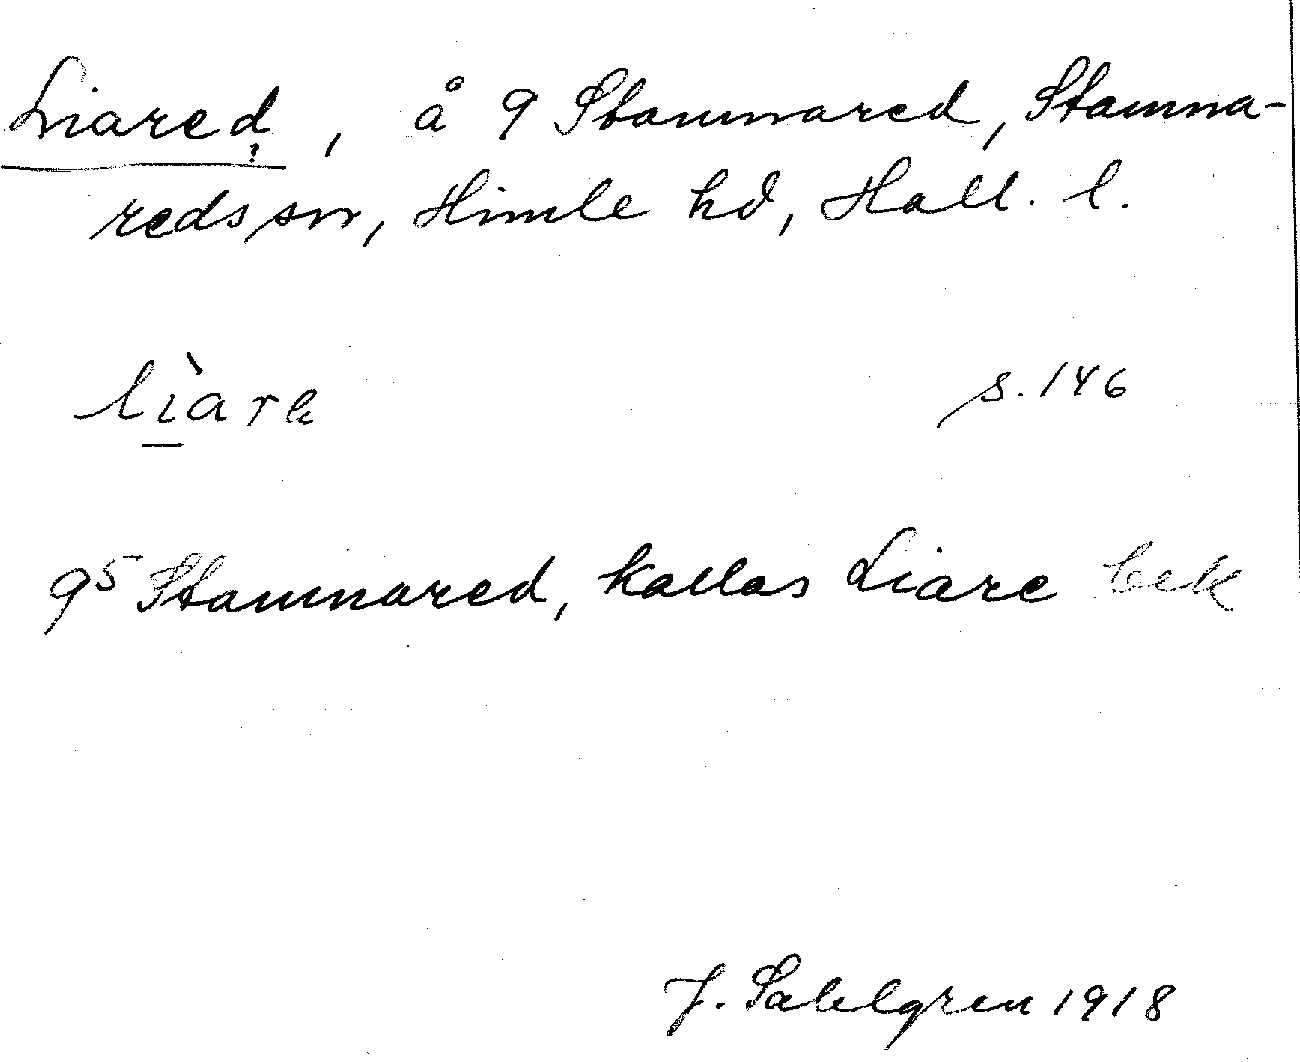 Liared, å 9 Stamnared, Stamna-
?
reds sn, Himle hd, Hall. l.
lìare s. 146
9⁵ Stamnared, kallas Liare bek
J. Sahlgren 1918